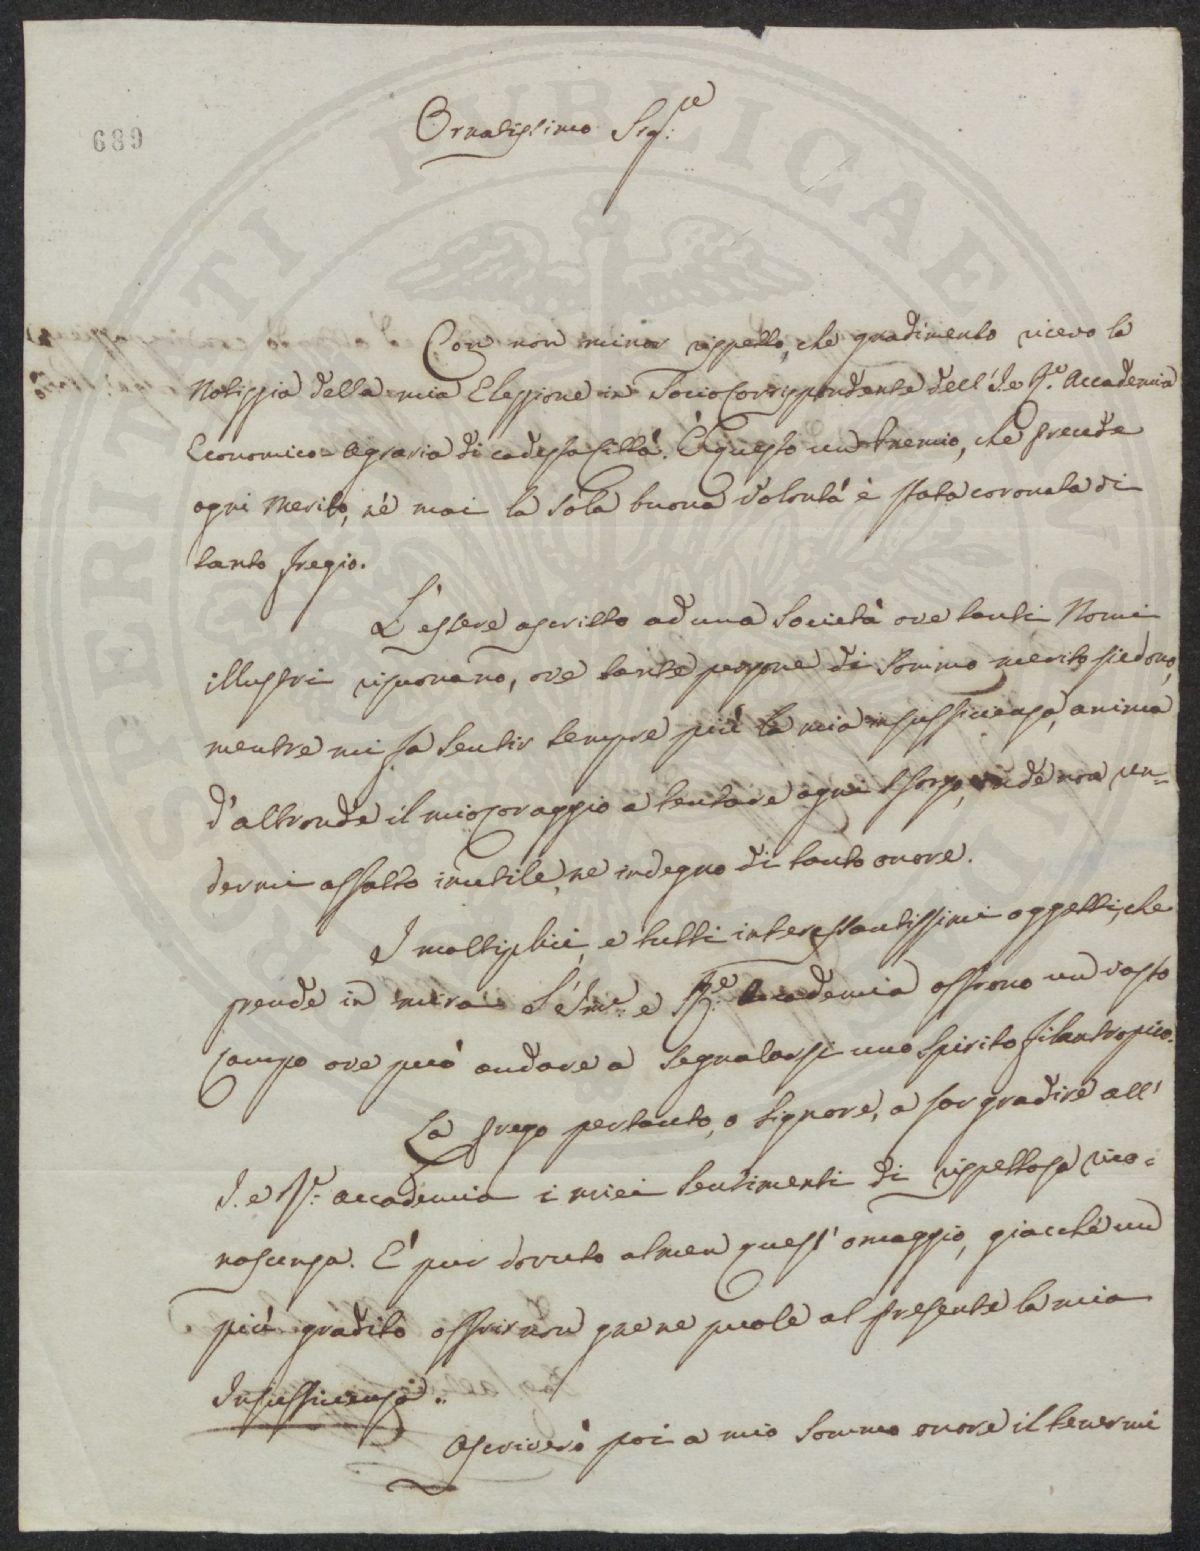 689
Ornatissimo Sig.re
Con non minor rispetto, che gradimento ricevo la
Notizzia della mia Elezzione in Socio Corrispondente dell'I. e R.e Accademia
Economico-Agraria di codessa Città. È questo un Premio, che precede
ogni merito, nè mai la sola buona volontà è stata coronata di
tanto fregio.
L'essere ascritto ad una Società ove tanti Nomi
illustri risuonano, ove tante persone di sommo merito siedono,
mentre mi fa sentir sempre più la mia insufficienza, anima
d'altronde il mio coraggio a tentare ogni sforzo, onde non ren-
dermi affatto inutile, ne indegno di tanto onore.
I moltiplici, e tutti interessantissimi oggetti, che
prende in mira l'Im.e e R.e Accademia offrono un vasto
Campo ove può andare a segnalarsi uno Spirito filantropico.
La prego pertanto, o Signore, a far gradire all'
I. e R.e accademia i miei sentimenti di rispettosa rico-
noscenza. È pur dovuto almen quest'omaggio, giacchè un
più gradito offrir non gne ne puole al presente la mia
Insufficienza.
Ascriverò poi a mio sommo onore il tenermi